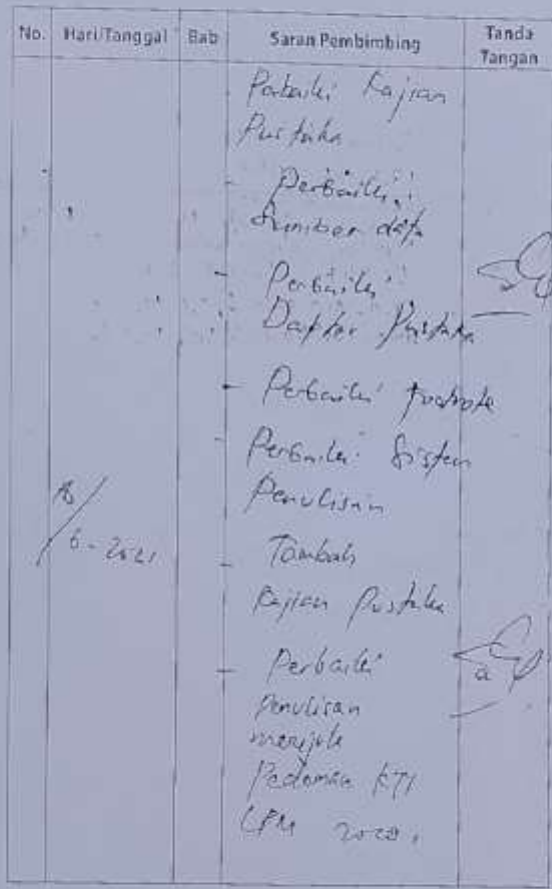 No. Hari/Tanggal Bab Saran Pembimbing Tanda Tangan
Perbaiki Kajian
Pustaka
- Perbaiki
Sumber data
- Perbaiki
Daftar Pustaka
- Perbaiki footnote
- Perbaiki Sistem
Penulisan
/6-2021
- Tambah
Kajian Pustaka
- Perbaiki
Penulisan
merujuk
Pedoman KTI
2020.